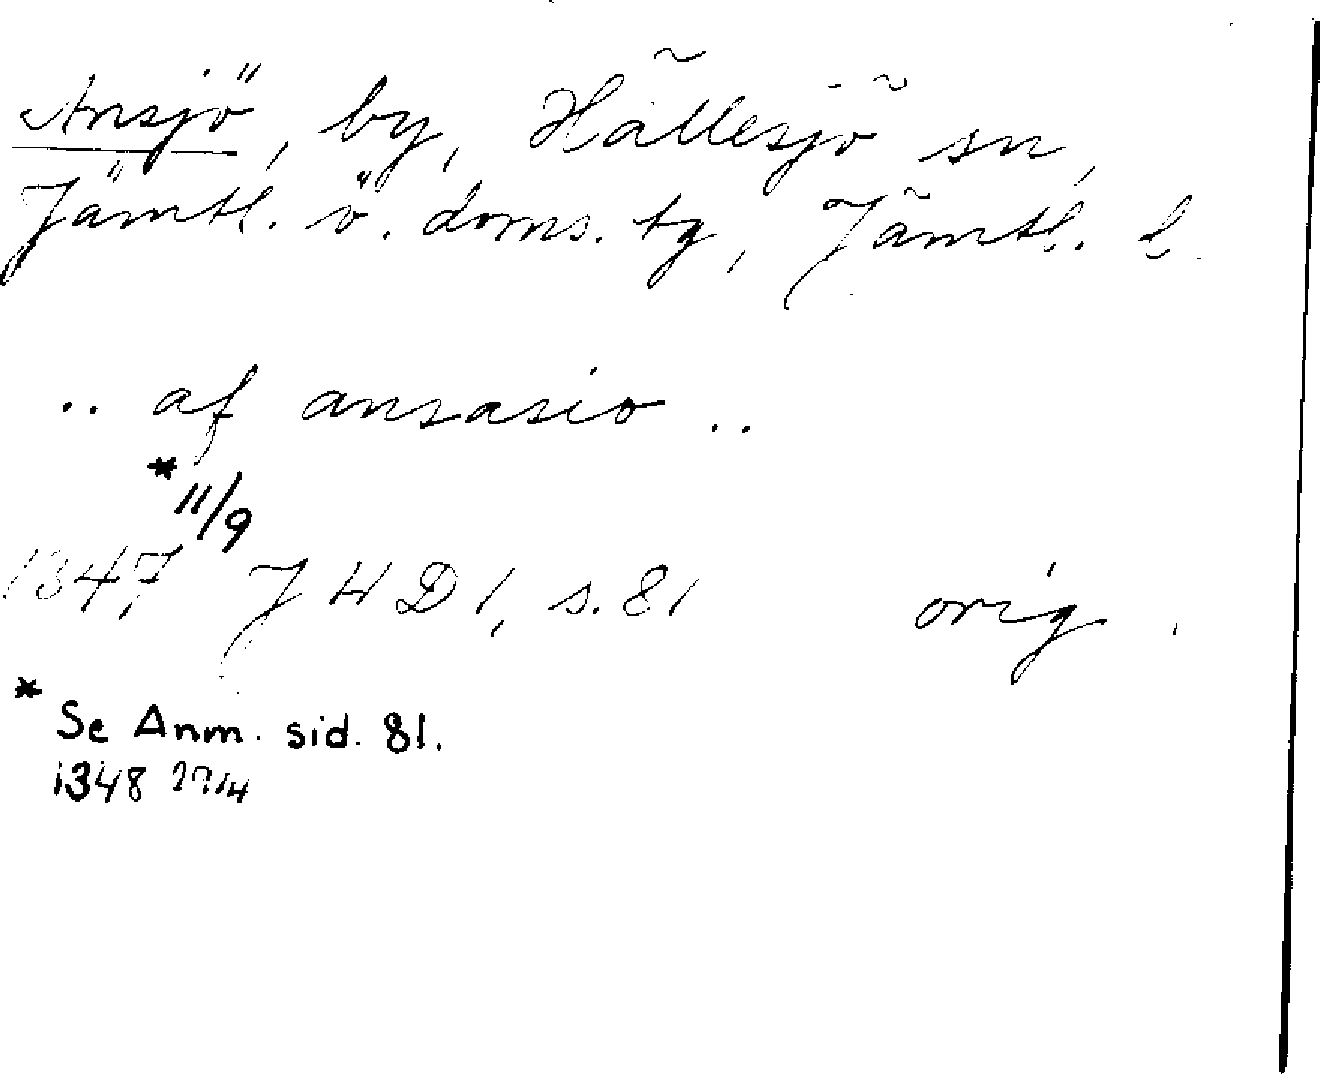 Ansjö, by, Hällesjö sn,
Jämtl. ö. doms. tg, Jämtl. l.
.. af ansasio ..
* 11/9
1347 J H D 1, s. 81 orig.
* Se Anm. sid. 81.
1348